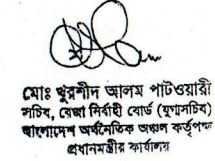 মোঃ খুরশীদ আলম পাটওয়ারী
সচিব, বেজা নির্বাহী বোর্ড (যুগ্মসচিব)
বাংলাদেশ অর্থনৈতিক অঞ্চল কর্তৃপক্ষ
প্রধানমন্ত্রীর কার্যালয়